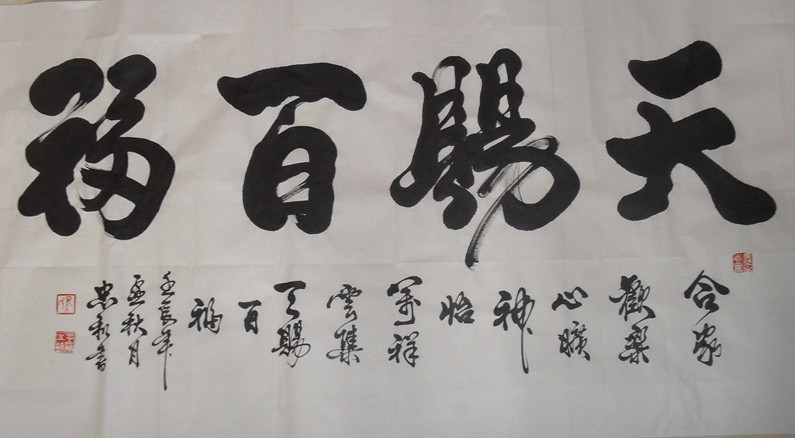 天賜百福
合家
歡樂
心曠
神
怡
萬祥
雲集
天賜
百
福
壬辰年
孟秋月
忠和書